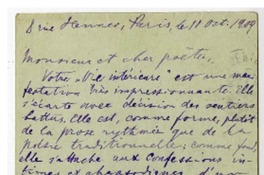 8 rue Hennner, Paris, le 11 oct. 1909
Monsieur et cher poète,
Votre "Vie intérieure" est une ma-
nifestation très impressionnante. Elle
s'écarte avec décision des sentiers
battus. Elle est, comme forme, plutôt
de la prose rythmée que de la
poésie traditionnelle; comme fond,
elle s'attache aux confessions in-
times et rhapsodiques d'un